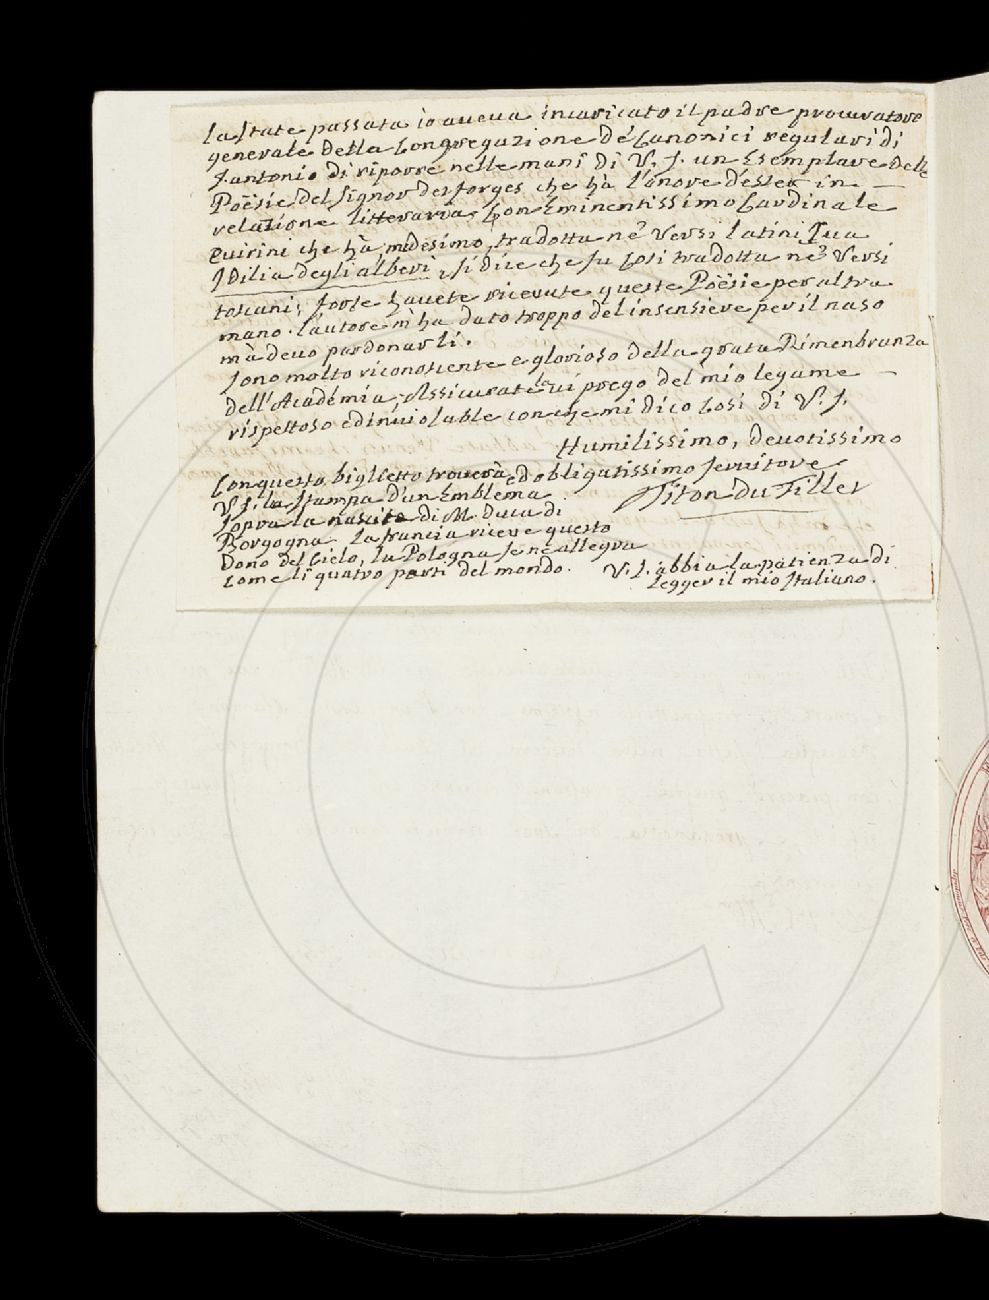 la state passata io aveva incaricato il padre procuratore
generale della Congregazione de' Canonici regulari di
S. antonio di riporre nelle mani di V. S. un Esemplare delle
Poësie del Signor desforges che hà l'onore d'esser in
relazione litteraria con Eminentissimo Cardinale
Quirini che hà medesimo tradotta ne' Versi latini Sua
Idilia degli alberi, si dice che fu Cosi tradotta ne' Versi
toscani; forse havete ricevute queste Poësie per altra
mano. l'autore m'ha dato troppo del insensiere per il naso
mà devo pardonarli.
Sono molto riconosciente e glorioso della grata Rimenbranza
dell'Académia, Assicuratela vi prego del mio legame
rispettoso ed inviolable con che mi dico Cosi di V. S.
Humilissimo, devotissimo
ed obligatissimo servitore
Titon du Tillet
Con questo biglietto troverà
V. S. la stampa d'un Emblema
sopra la nascita di M. Duca di
Borgogna. la francia riceve questo
Dono del Cielo, la Pologna se ne allegra
come li quatro parti del mondo.
V. S. abbia la patienza di
legger il mio Italiano.